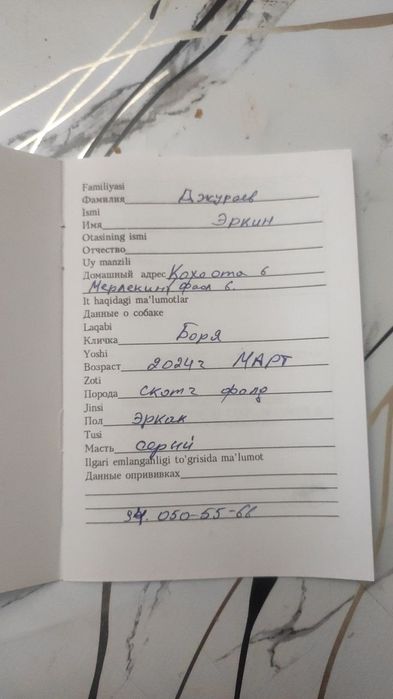 Familiyasi
Фамилия Джураев
Ismi
Имя Эркин
Otasining ismi
Отчество
Uy manzili
Домашный адрес Кохо ота 6
фаол 6.
It haqidagi ma'lumotlar
Данные о собаке
Laqabi
Кличка Боря
Yoshi
Возраст 2024г МАРТ
Zoti
Порода скотч фолд
Jinsi
Пол Эркак
Tusi
Масть серий
Ilgari emlanganligi to'grisida ma'lumot
Данные опрививках
94. 050-55-66